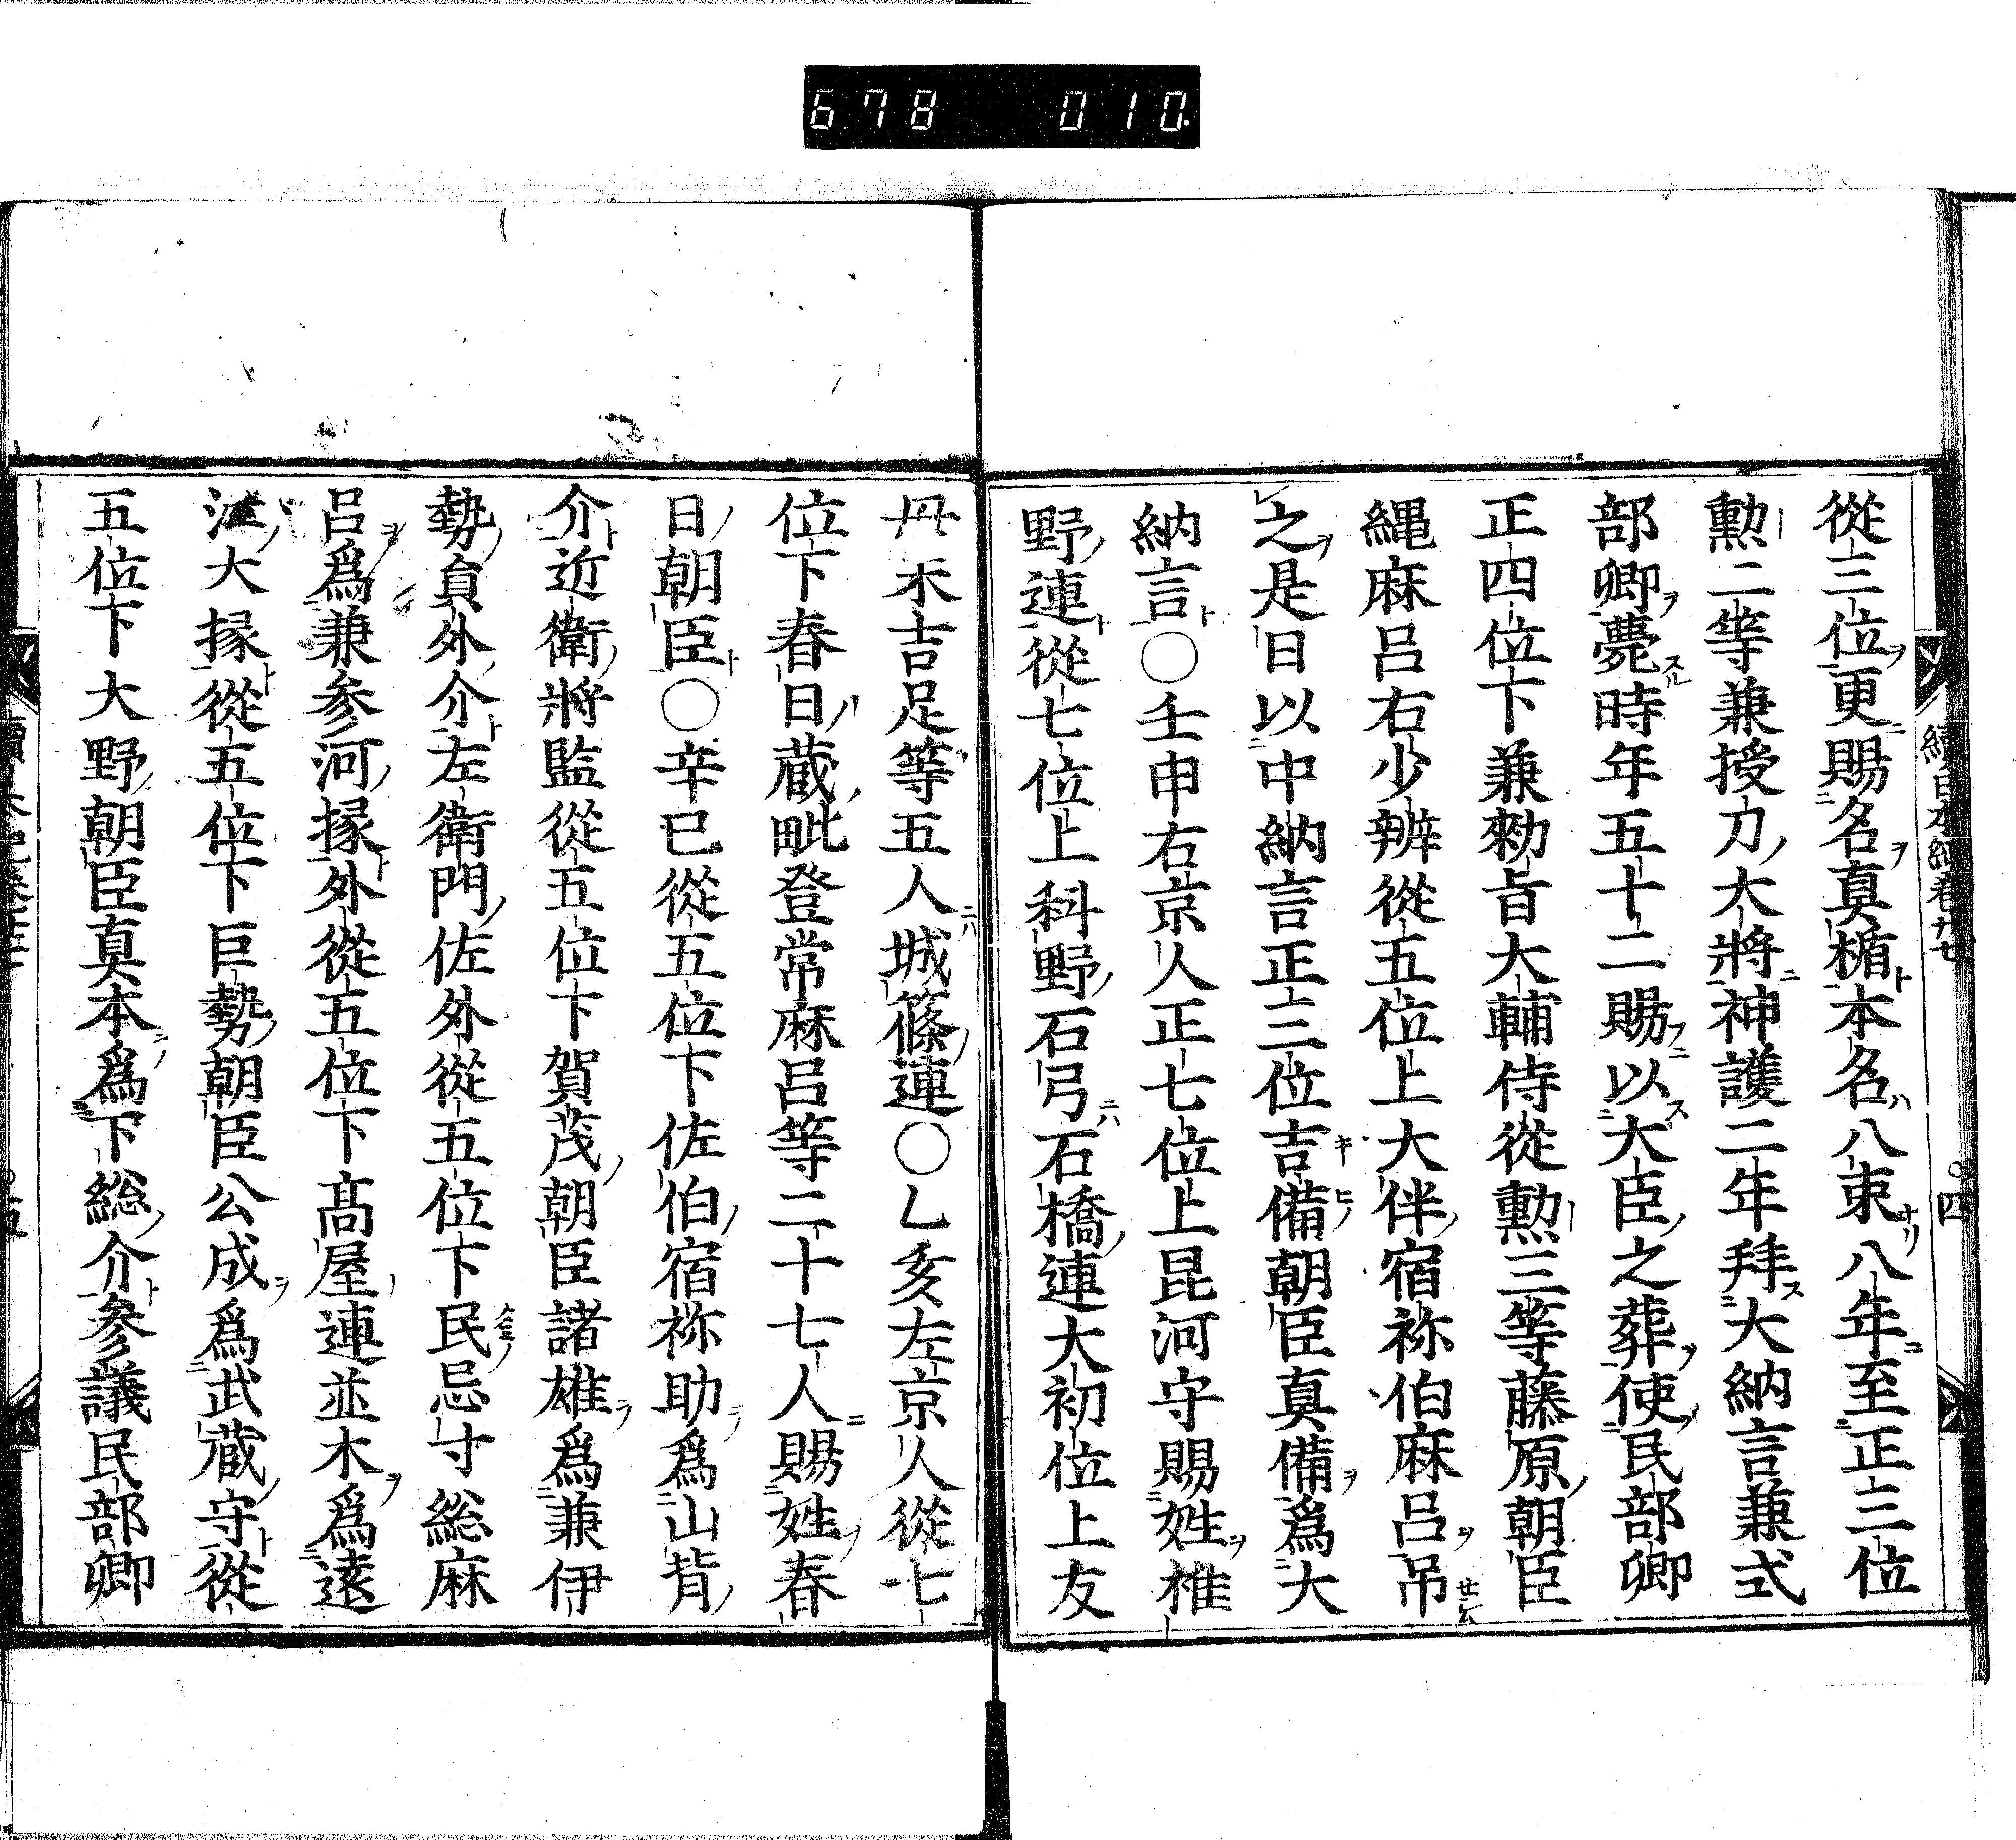 678 010.
續日本紀卷廿七
四
從三位更賜名真楯本名八束八年至正三位
勳二等兼授刀大將神護二年拜大納言兼式
部卿薨時年五十二賜以大臣之葬使民部卿
正四位下兼勅旨大輔侍從勳三等藤原朝臣
縄麻呂右少辨從五位上大伴宿祢伯麻呂吊
之是日以中納言正三位吉備朝臣真備爲大
納言〇壬申右京人正七位上昆河守賜姓椎
野連從七位上科野石弓石橋連大初位上友
丹禾吉足等五人城篠連〇乙亥左京人從七
位下春日蔵毗登常麻呂等二十七人賜姓春
日朝臣〇辛已從五位下佐伯宿祢助爲山背
介近衛將監從五位下賀茂朝臣諸雄爲兼伊
勢員外介左衛門佐外從五位下民忌寸総麻
呂爲兼參河掾外從五位下髙屋連並木爲遠
江大掾從五位下巨勢朝臣公成爲武蔵守從
五位下大野朝臣真本爲下総介參議民部卿